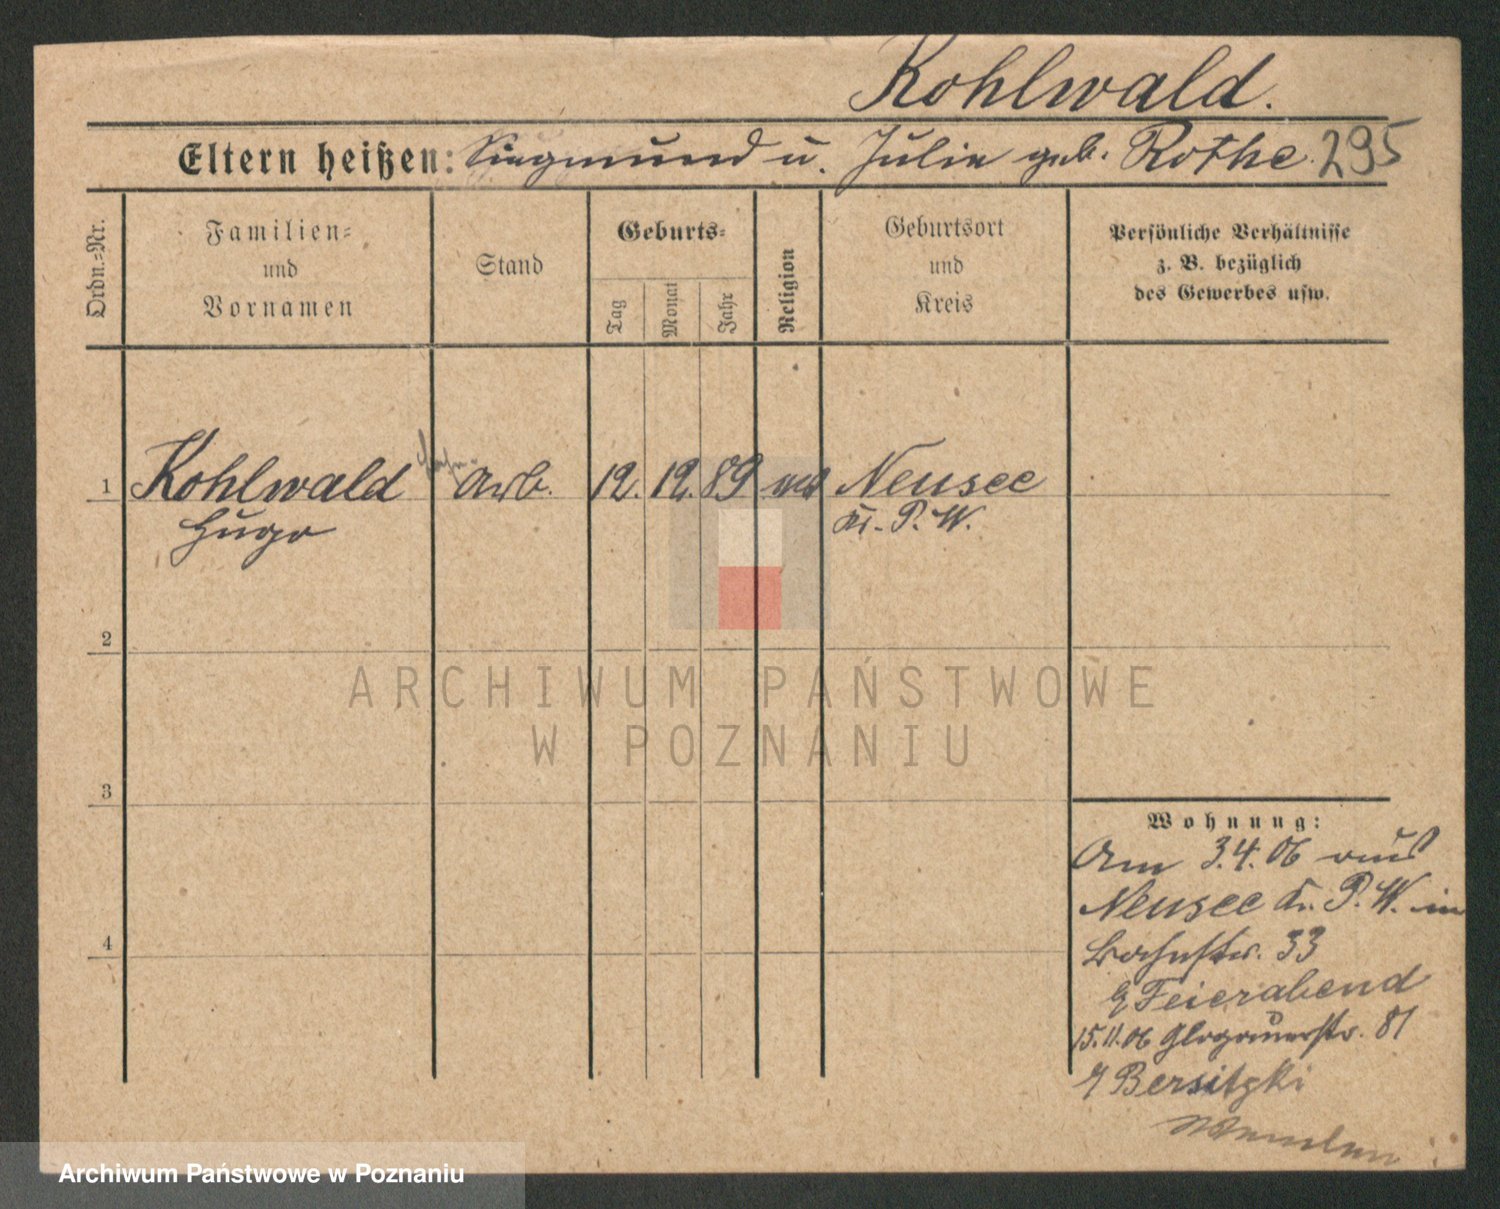 Kohlwald.
Eltern heißen: Siegmund u. Julie geb. Rothe. 295
Ordn.=Nr.
Familien=
und
Vornamen
Stand
Geburts=
Tag
Monat
Jahr
Religion
Geburtsort
und
Kreis
Persönliche Verhältnisse
z. B. bezüglich
des Gewerbes usw.
1 Kohlwald Arb. 12. 12. 89 Neusee
Hugo Kr. P. W.
2
ARCHIWUM PAŃSTWOWE
W POZNANIU
3
Wohnung:
Am 3.4.06 aus
Neusee Kr. P. W. in
33
4
Feierabend
15.11.06 Glogauerstr. 81
Bersitzki
Archiwum Państwowe w Poznaniu